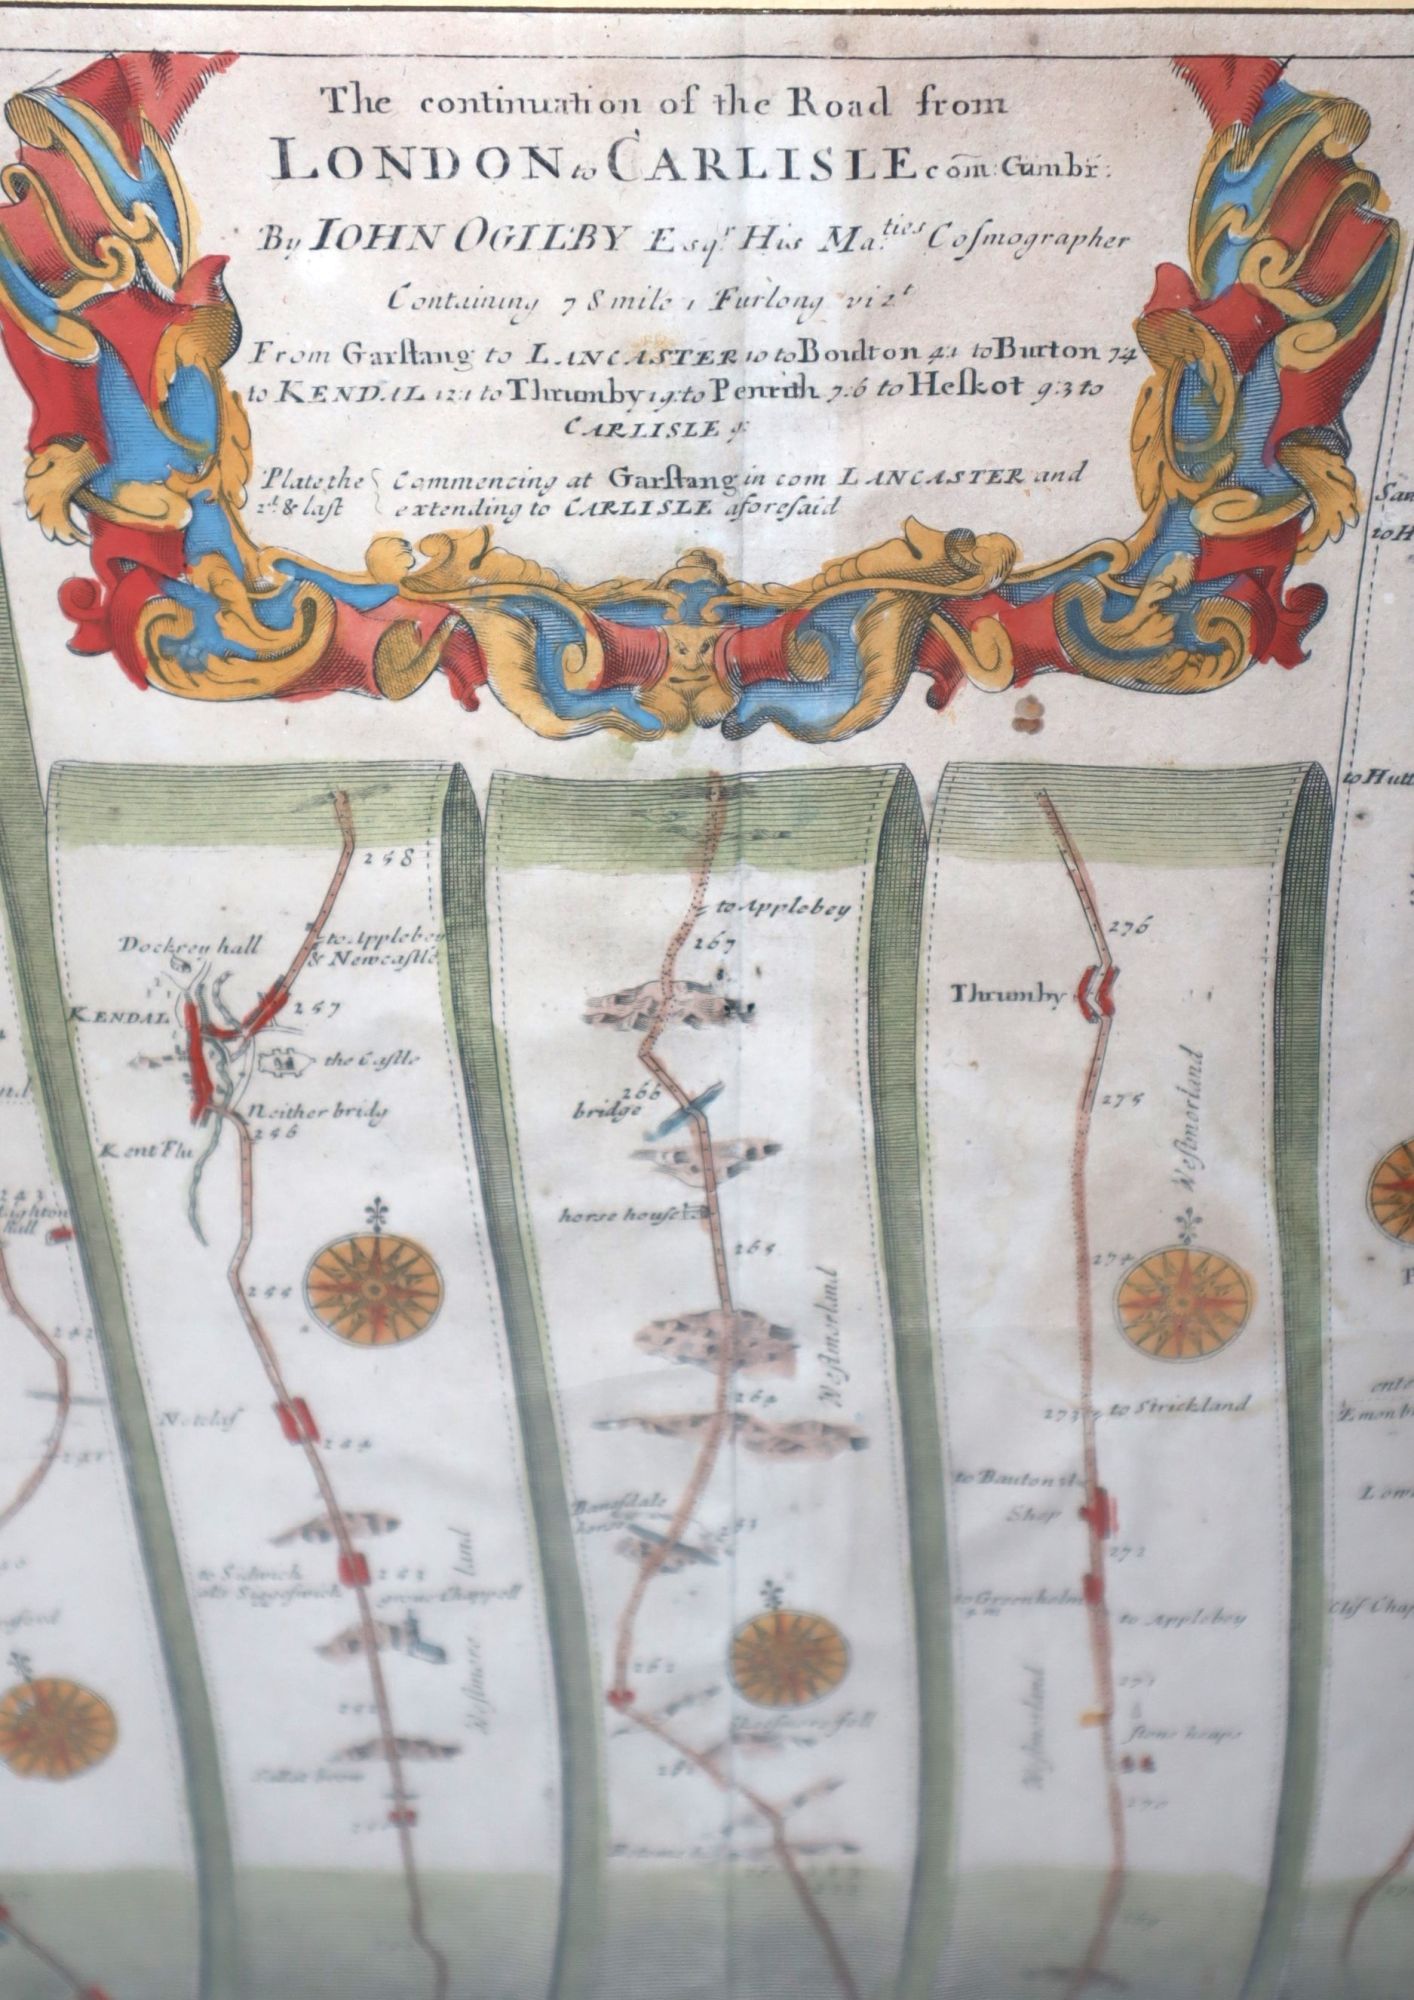 The continuation of the Road from
LONDON to CARLISLE com: Cumbr:
By IOHN OGILBY Esqr. His Ma.ties Coſmographer
Containing 78 mile 1 Furlong vizt
From Garſtang to LANCASTER 10 to Boulton 4:1 to Burton 7:4
to KENDAL 12:1 to Thrumby 19: to Penrith 7:6 to Heſkot 9:3 to
CARLISLE 9:
Plate the Commencing at Garſtang in com LANCASTER and
2d. & laſt extending to CARLISLE aforeſaid
to Hutt
243
Lighton
Hall
242
241
258
to Applebey
& Newcaſtle
Dockrey hall
257
KENDAL
the Caſtle
Neither bridg
256
Kent Flu
255
Notclaſ
254
to Sidwich
als Siggeſwich
253
grone Chappell
Weſtmore land
252
to Applebey
267
266
bridge
horse house
265
Weſtmorland
264
Banſdale
262
261
276
Thrumby
275
Weſtmorland
274
273
to Strickland
to Bauton
Shap
272
to Greenholm
to Applebey
271
ſtone heaps
Weſtmorland
270